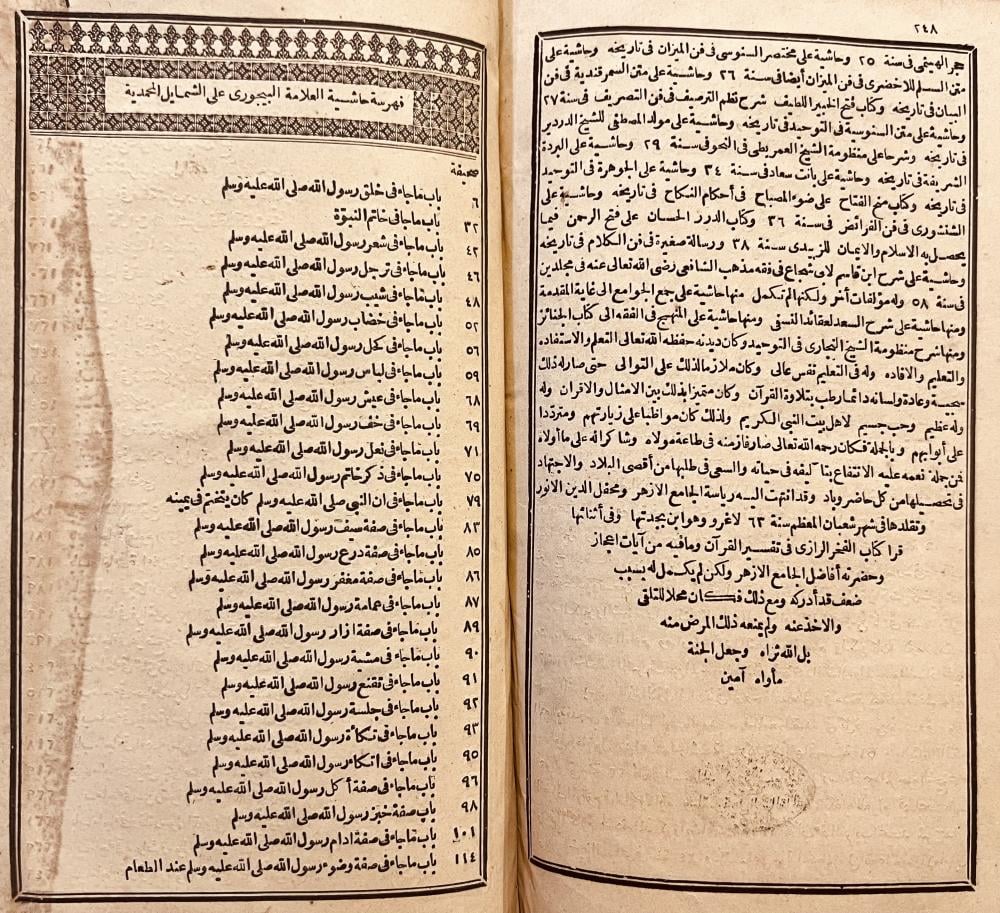 ٢٤٨
حجر الهيتمى فى سنة ٢٥ وحاشية على مختصر السنوسى فى فن الميزان فى تاريخه وحاشية على
متن السلم للاخضرى فى فن الميزان أيضا فى سنة ٢٦ وحاشية على متن السمرقندية فى فن
البيان فى تاريخه وكتاب فتح الخبير اللطيف شرح نظم الترصيف فى فن التصريف فى سنة ٢٧
وحاشية على متن السنوسية فى التوحيد فى تاريخه وحاشية على مولد المصطفى للشيخ الدردير
فى تاريخه وشرحا على منظومة الشيخ العمريطى فى النحو فى سنة ٢٩ وحاشية على البردة
الشريفة فى تاريخه وحاشية على بانت سعاد فى سنة ٣٤ وحاشية على الجوهرة فى التوحيد
فى تاريخه وكتاب منح الفتاح على ضوء المصباح فى أحكام النكاح فى تاريخه وحاشية على
الشنشورى فى فن الفرائض فى سنة ٣٦ وكتاب الدرر الحسان على فتح الرحمن فيما
يحصل به الاسلام والايمان للزبيدى سنة ٣٨ ورسالة صغيرة فى فن الكلام فى تاريخه
وحاشية على شرح ابن قاسم لابى شجاع فى فقه مذهب الشافعى رضى الله تعالى عنه فى مجلدين
فى سنة ٥٨ وله مؤلفات أخر ولكنها لم تكمل منها حاشية على جمع الجوامع الى غاية المقدمة
ومنها حاشية على شرح السعد لعقائد النسفى ومنها حاشية على المنهج فى الفقه الى كتاب الجنائز
ومنها شرح منظومة الشيخ البخارى فى التوحيد وكان ديدنه حفظه الله تعالى التعلم والاستفاده
والتعليم والافاده وله فى التعليم نفس عالى وكان ملازما لذلك على التوالى حتى صار له ذلك
سجية وعادة ولسانه دائما رطب بتلاوة القرآن وكان متميزا بذلك بين الامثال والاقران وله
وله عظيم وحب جسيم لاهل بيت النبى الكريم ولذلك كان مواظبا على زيارتهم ومترددا
على أبوابهم وبالجملة فكان رحمه الله تعالى صارفا زمنه فى طاعة مولاه وشاكرا له على ما أولاه
فمن جملة نعمه عليه الانتفاع بتآليفه فى حياته والسعى فى طلبها من أقصى البلاد والاجتهاد
فى تحصيلها من كل حاضر وباد وقد انتهت اليه رياسة الجامع الازهر ومحفل الدين الانور
وتقلدها فى شهر شعبان المعظم سنة ٦٣ لاغرو وهو ابن بجدتها وفى أثنائها
قرا كتاب الفخر الرازى فى تفسير القرآن ومافيه من آيات اعجاز
وحضرته أفاضل الجامع الازهر ولكن لم يكمل له بسبب
ضعف قد أدركه ومع ذلك فكان محلا للتلقى
والاخذ عنه ولم يمنعه ذلك المرض منه
بل الله ثراه وجعل الجنة
مأواه آمين
فهرسة حاشية العلامة البيجورى على الشمايل المحمدية
صحيفة
٦ باب ماجاء فى خلق رسول الله صلى الله عليه وسلم
٣٢ باب ماجا فى خاتم النبوّة
٤٢ باب ماجاء فى شعر رسول الله صلى الله عليه وسلم
٤٦ باب ماجاء فى ترجل رسول الله صلى الله عليه وسلم
٤٨ باب ماجاء فى شيب رسول الله صلى الله عليه وسلم
٥٢ باب ماجاء فى خضاب رسول الله صلى الله عليه وسلم
٥٦ باب ماجاء فى كحل رسول الله صلى الله عليه وسلم
٥٩ باب ماجاء فى لباس رسول الله صلى الله عليه وسلم
٦٨ باب ماجاء فى عيش رسول الله صلى الله عليه وسلم
٦٩ باب ماجاء فى خف رسول الله صلى الله عليه وسلم
٧١ باب ماجاء فى نعل رسول الله صلى الله عليه وسلم
٧٥ باب ماجاء فى ذكر خاتم رسول الله صلى الله عليه وسلم
٧٩ باب ماجاء فى ان النبى صلى الله عليه وسلم كان يتختم فى يمينه
٨٣ باب ماجاء فى صفة سيف رسول الله صلى الله عليه وسلم
٨٥ باب ماجاء فى صفة درع رسول الله صلى الله عليه وسلم
٨٦ باب ماجاء فى صفة مغفر رسول الله صلى الله عليه وسلم
٨٧ باب ماجاء فى عمامة رسول الله صلى الله عليه وسلم
٨٩ باب ماجاء فى صفة ازار رسول الله صلى الله عليه وسلم
٩٠ باب ماجاء فى مشية رسول الله صلى الله عليه وسلم
٩١ باب ماجاء فى تقنع رسول الله صلى الله عليه وسلم
٩٢ باب ماجاء فى جلسة رسول الله صلى الله عليه وسلم
٩٣ باب ماجاء فى تكأة رسول الله صلى الله عليه وسلم
٩٥ باب ماجاء فى اتكاء رسول الله صلى الله عليه وسلم
٩٦ باب ماجاء فى صفة أكل رسول الله صلى الله عليه وسلم
٩٨ باب صفة خبز رسول الله صلى الله عليه وسلم
١٠١ باب ماجاء فى صفة ادام رسول الله صلى الله عليه وسلم
١١٤ باب ماجاء فى صفة وضوء رسول الله صلى الله عليه وسلم عند الطعام